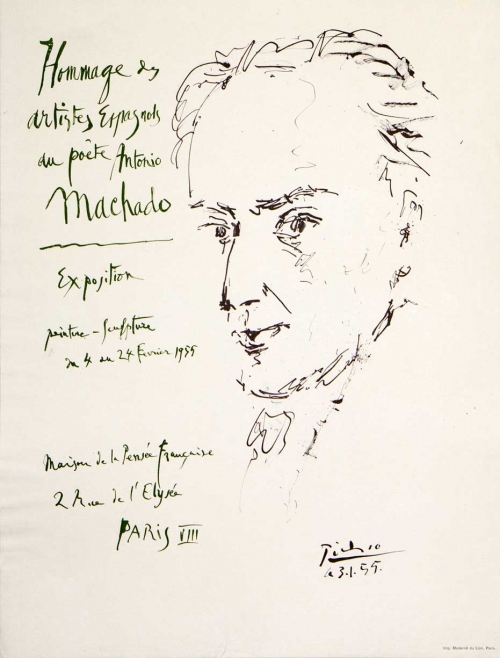 Hommage des
artistes Espagnols
au poète Antonio
Machado
Exposition
peinture - Sculpture
du 4. au 24. Février 1955
Maison de la Pensée Française
2 Rue de l'Elysée
PARIS VIII
Picasso
le 3.1.55.
Imp. Mourlot Paris